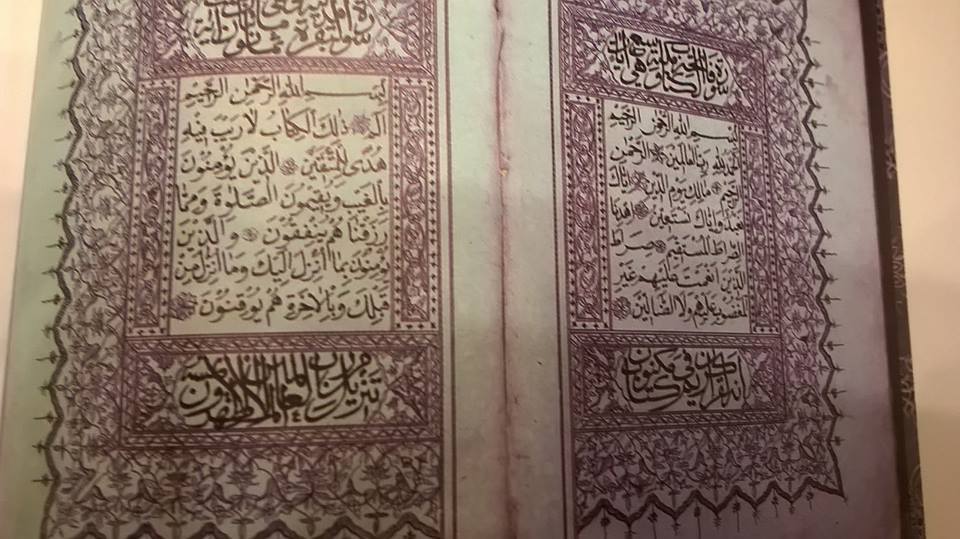 سورة فاتحة الكتاب مكية وهي سبع آيات
بسم الله الرحمن الرحيم
الحمد لله رب العالمين الرحمن
الرحيم مالك يوم الدين إياك
نعبد وإياك نستعين اهدنا
الصراط المستقيم صراط
الذين أنعمت عليهم غير
المغضوب عليهم ولا الضالين
إنه لقرآن كريم في كتاب مكنون
سورة البقرة
بسم الله الرحمن الرحيم
الم ذلك الكتاب لا ريب فيه
هدى للمتقين الذين يؤمنون
بالغيب ويقيمون الصلوة ومما
رزقناهم ينفقون والذين
يؤمنون بما أنزل إليك وما أنزل من
قبلك وبالآخرة هم يوقنون
لا يمسه إلا المطهرون تنزيل من رب العالمين